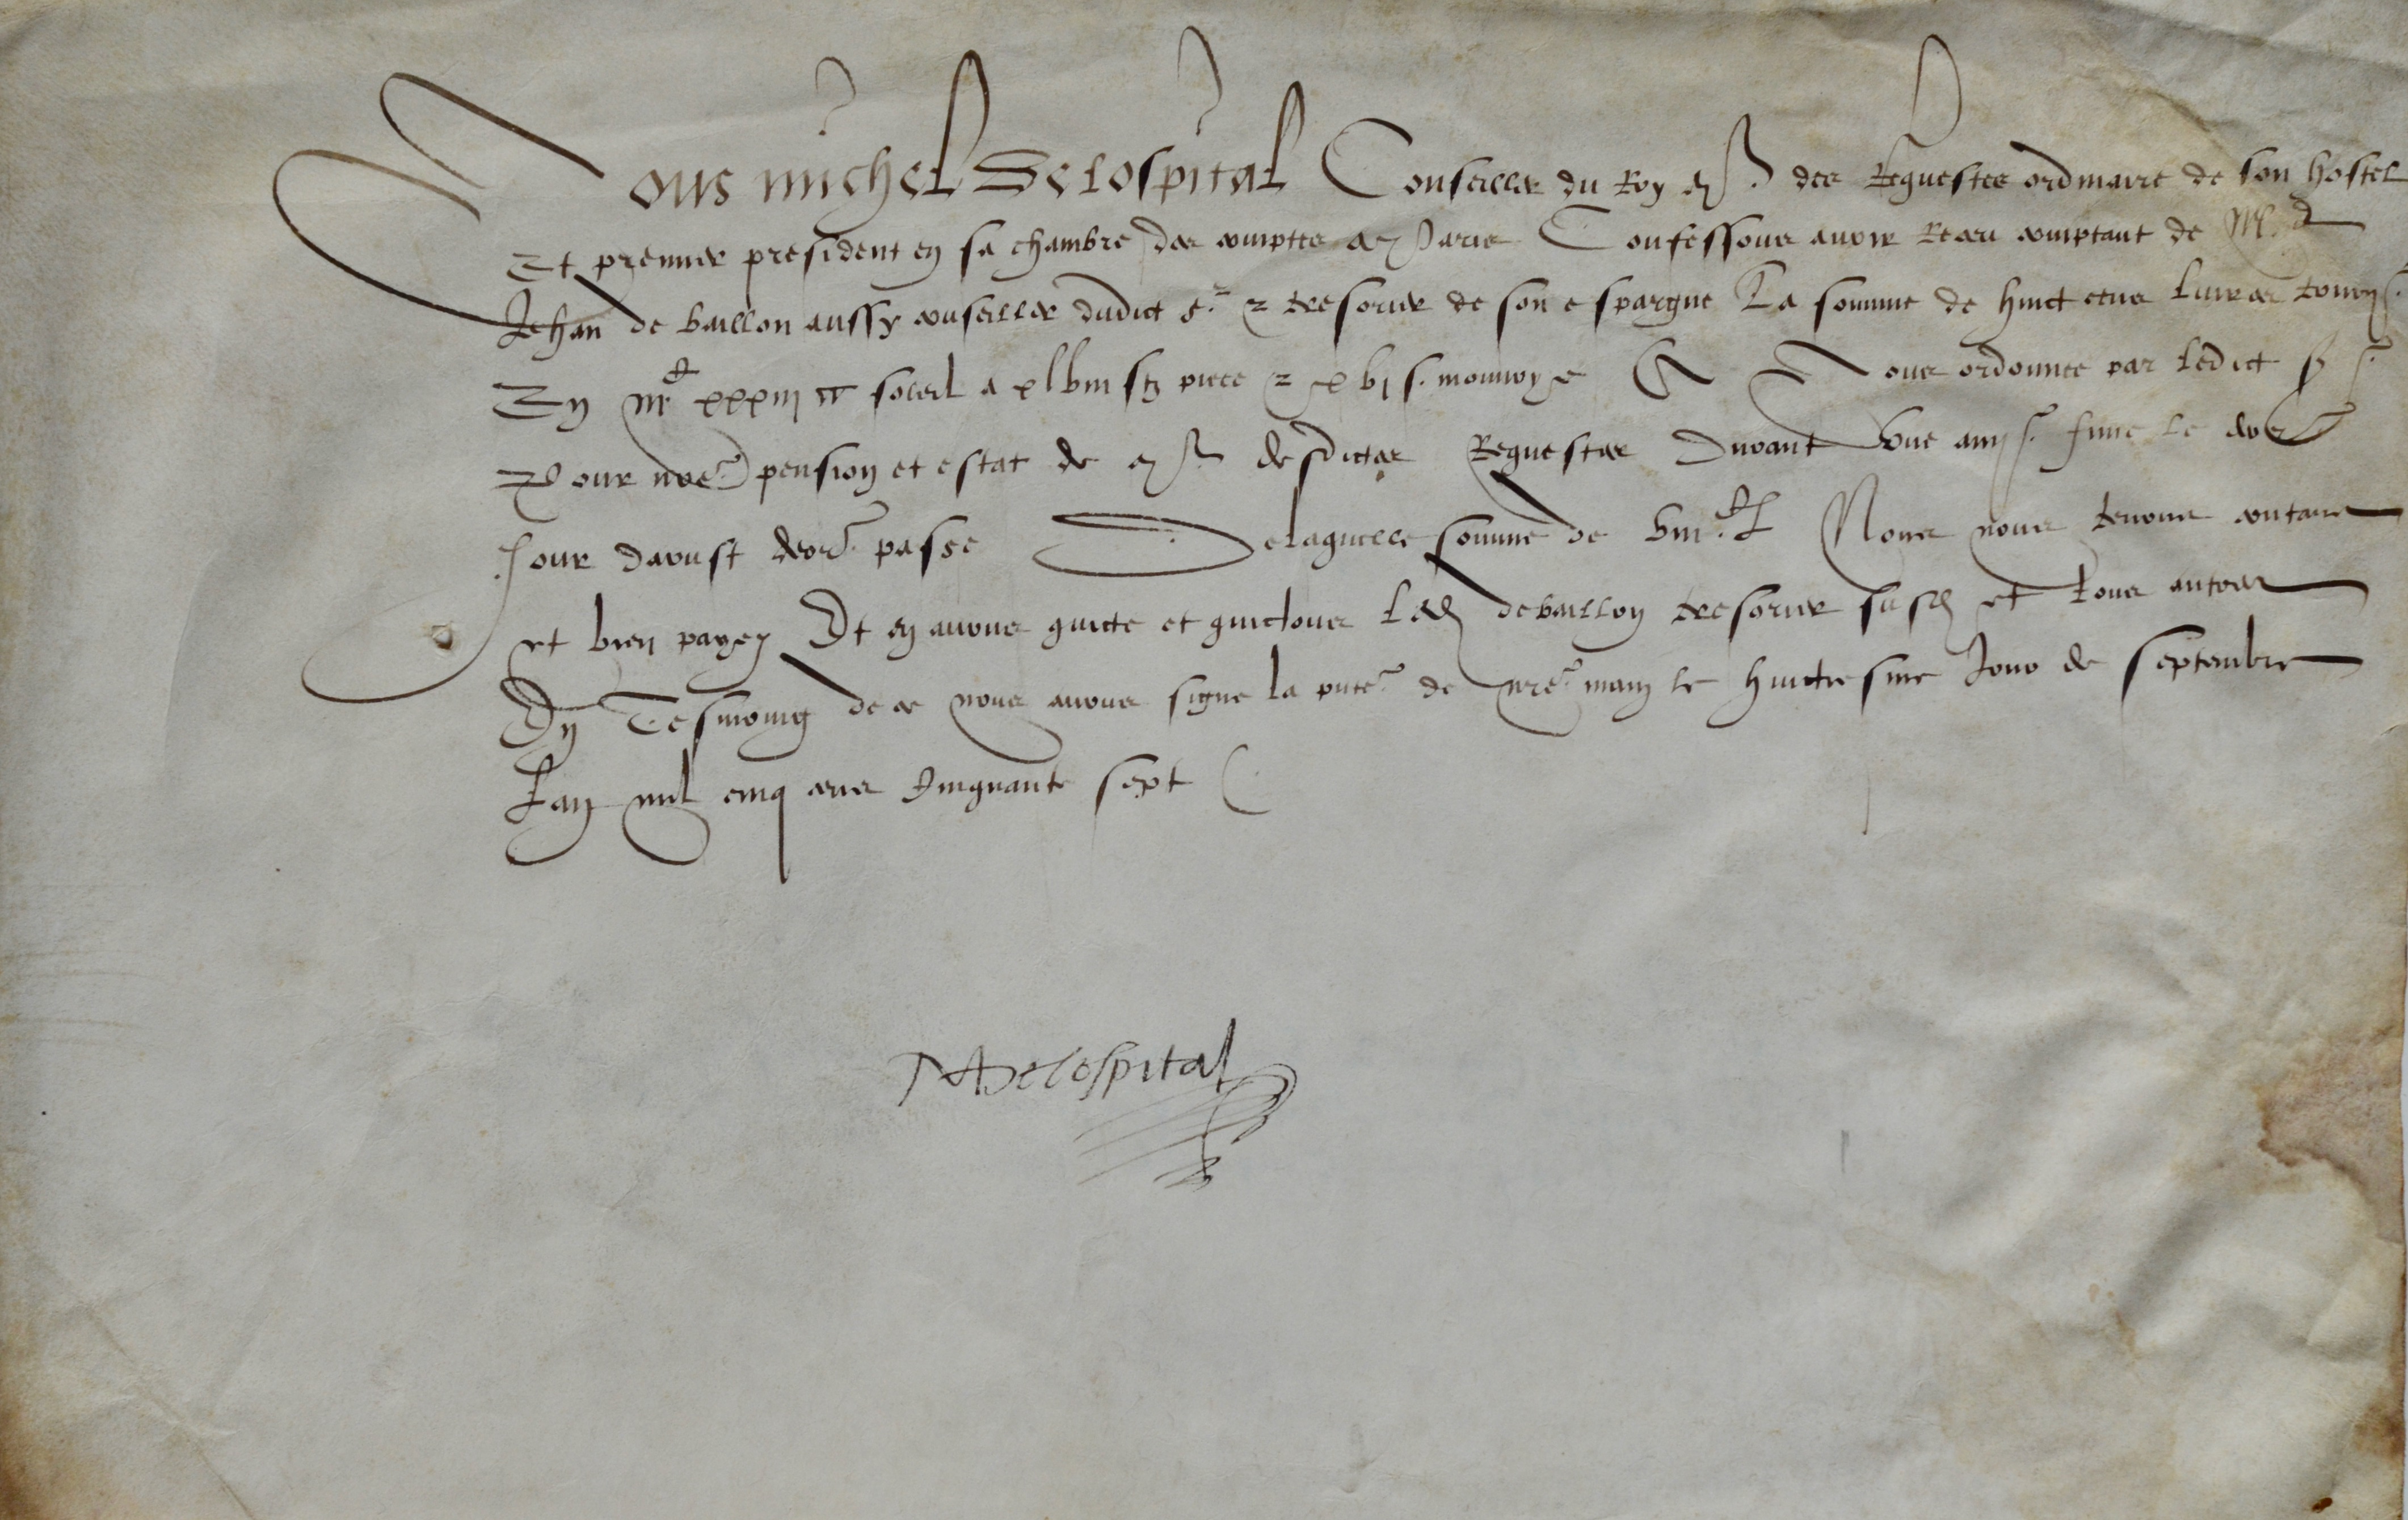 Nous michel De Lospital Conseiller du Roy et mᵉ des Requestes ordinaire de son hostel
Et premier president en sa chambre des comptes a Paris Confessons avoir Receu comptant de Mᵉ
Jehan de baillon aussy conseiller dudict sʳ & tresorier de son espargne La somme de huict cens livres tourn
En iiiᶜ xxxiii soleil a xlviii sz piece & xvi s. monnoye A Nous ordonnee par ledict sʳ
Pour nrẽ pension et estat de mᵉ desdictes Requestes Durant ung an finie le derʳ
Jour daoust derʳ passe Delaquelle somme de viiiᶜ L Nous nous tenons contans
et bien payez Et en avons quicte et quictons led debaillon tresorier susd et tous autres
En Tesmoing de ce nous avons signe la pnteˢ de nrẽ main le huictiesme Jour de septembre
Lan mil cinq cens cinquante sept
MDelospital